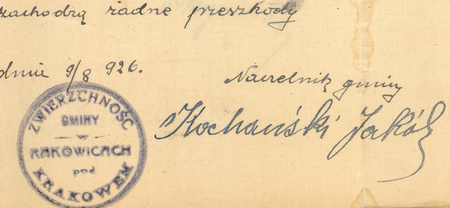 zachodzą żadne przeszkody
dnia 9/8 926.
Naczelnik gminy
Kochański Jakób
ZWIERZCHNOŚĆ
GMINY
w
RAKOWICACH
pod
KRAKOWEM